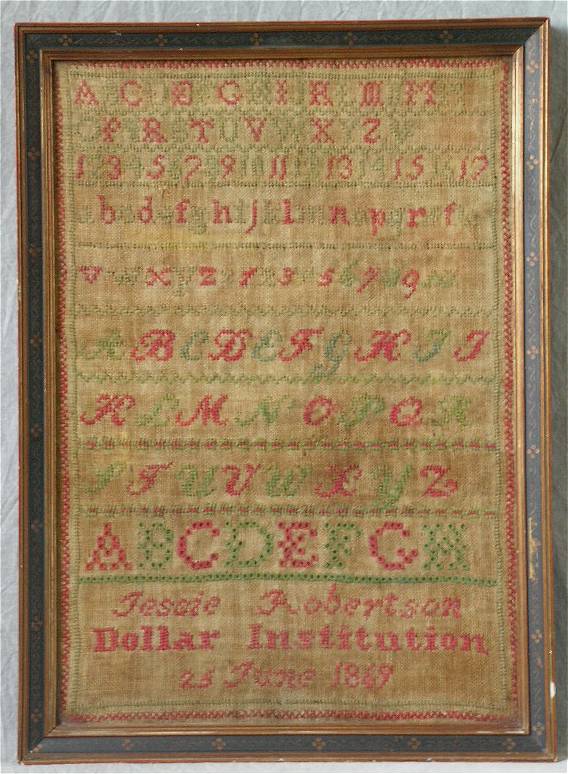 A C E G I K M
P R T U V W X Z
1 3 5 7 9 11 13 15 17
a b c d e f g h i j k l m n o p q r s t
v w x y z 1 3 5 7 9
A B C D E F G H I J
K L M N O P Q R
S T U V W X Y Z
A B C D E F G H
Jessie Robertson
Dollar Institution
25 June 1869